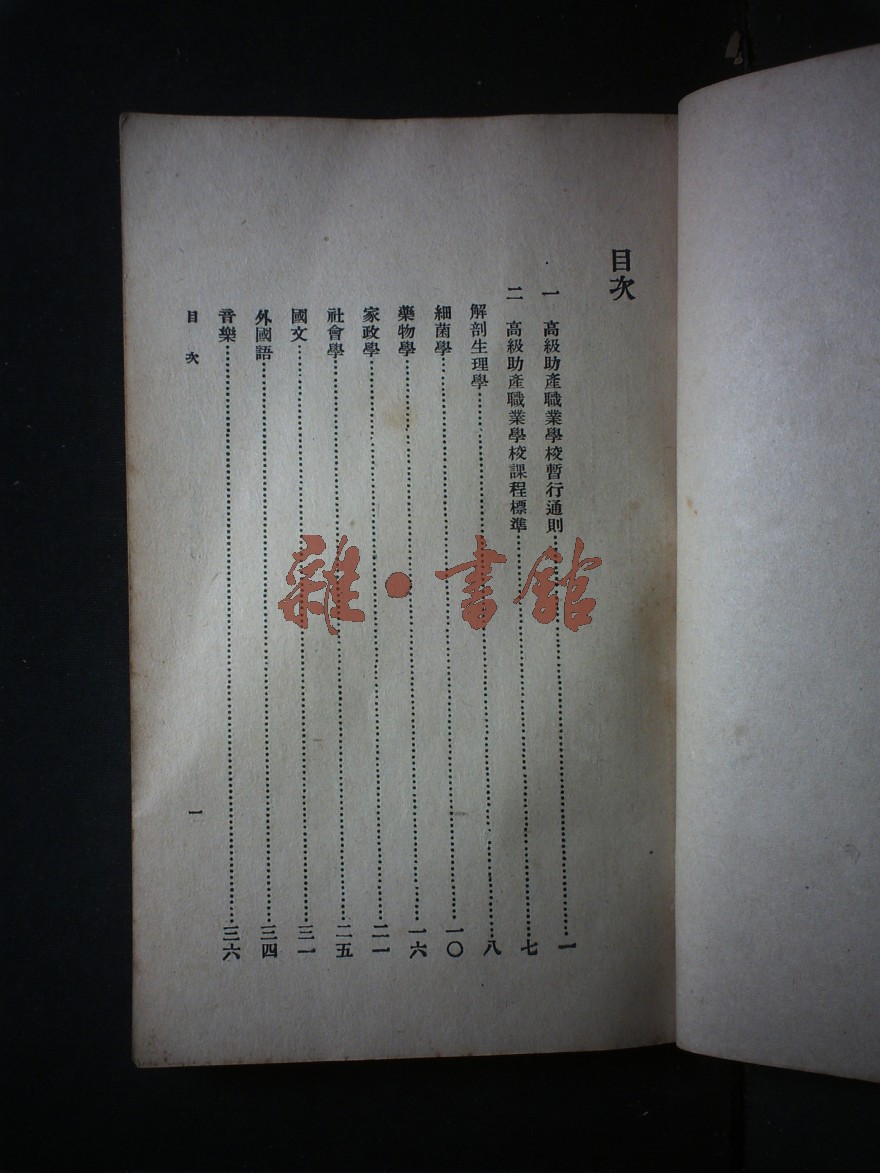 目次
一 高級助產職業學校暫行通則…………一
二 高級助產職業學校課程標準…………七
解剖生理學…………八
細菌學…………一〇
藥物學…………一六
家政學…………二一
社會學…………二五
國文…………三一
外國語…………三四
音樂…………三六
目次 一
雜·書館